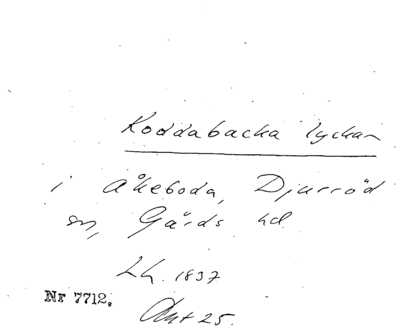 Koddabacka lyckan
i Åkeboda, Djurröd
sn, Gärds hd
Lh. 1837
Nr 7712.
Akt 25.